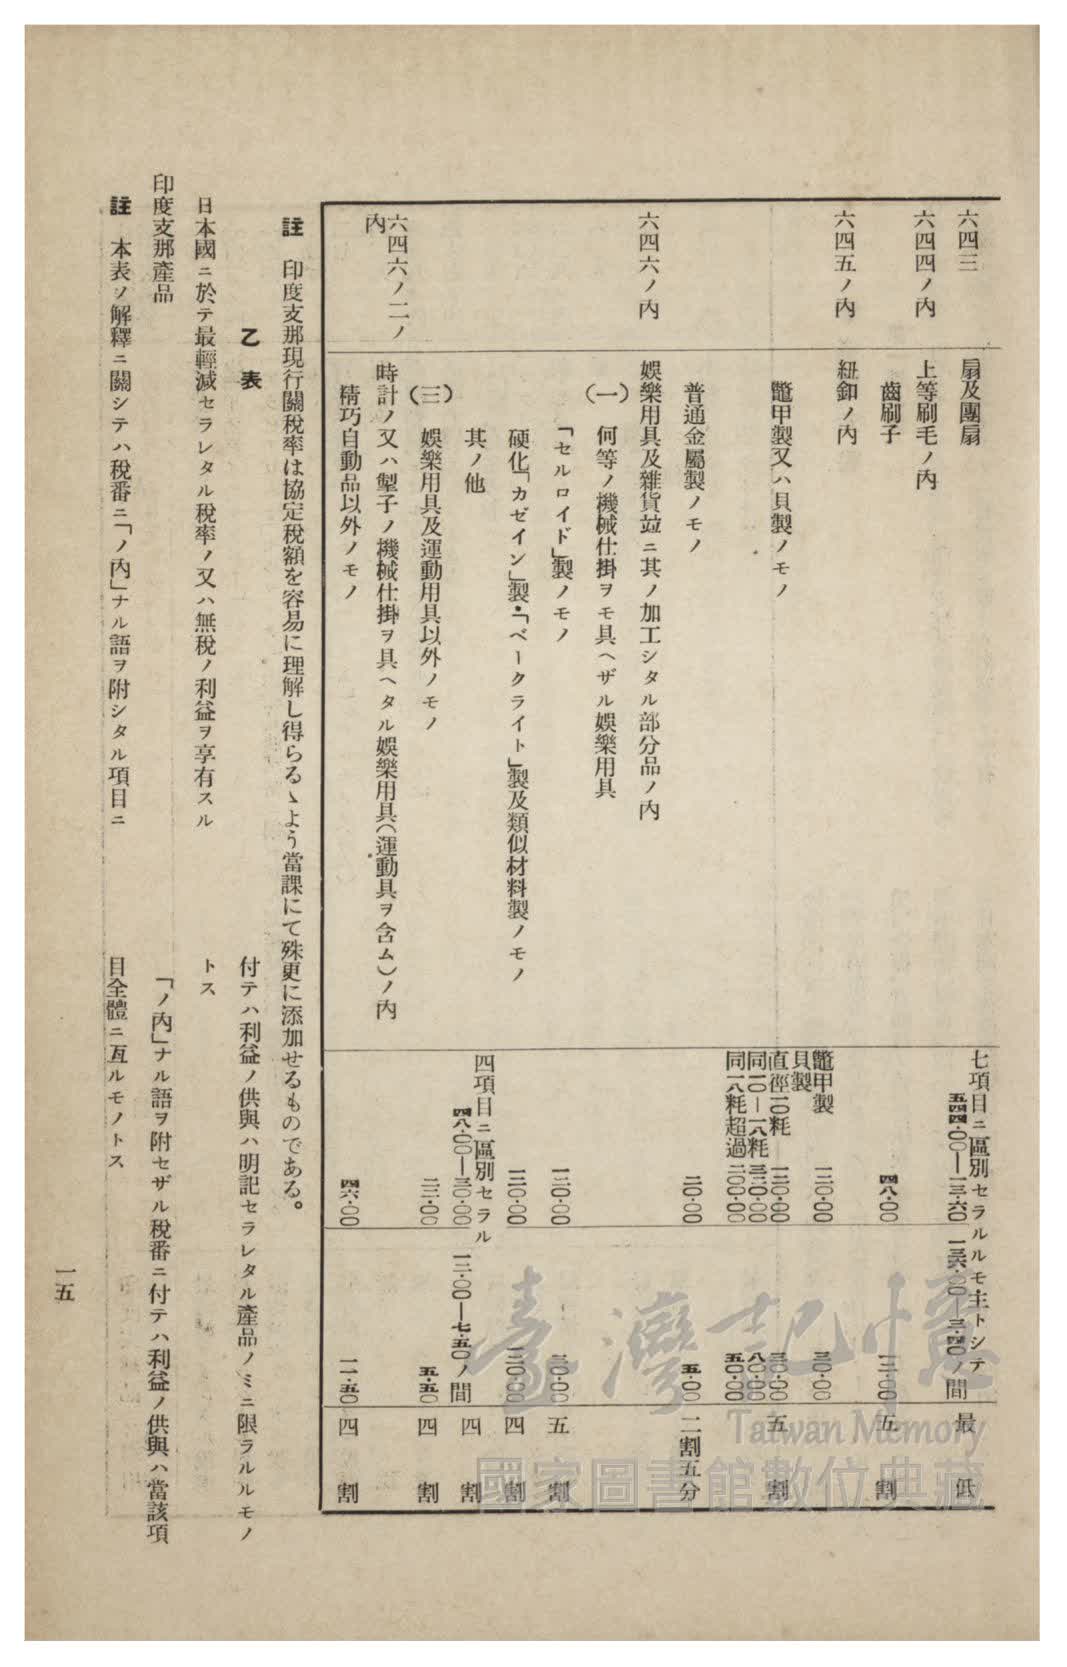 六四三 扇及團扇 七項目ニ區別セラルルモ主トシテ
五四四・〇〇―一三・六〇 一三六・〇〇 三・四〇ノ間 最低
六四四ノ內 上等刷毛ノ內
齒刷子 四八・〇〇 一二・〇〇 五割
六四五ノ內 紐釦ノ內
鼈甲製又ハ貝製ノモノ
鼈甲製 一二〇・〇〇 三〇・〇〇
貝製
直徑一〇粍 一二〇・〇〇 三〇・〇〇 五割
同一〇―一八粍 三二〇・〇〇 八〇・〇〇
同一八粍超過 二〇〇・〇〇 五〇・〇〇
普通金屬製ノモノ 二〇・〇〇 五・〇〇 二割五分
六四六ノ內 娛樂用具及雜貨竝ニ其ノ加工シタル部分品ノ內
(一) 何等ノ機械仕掛ヲモ具ヘザル娛樂用具
「セルロイド」製ノモノ 一二〇・〇〇 三〇・〇〇 五割
硬化「カゼイン」製・「ベークライト」製及類似材料製ノモノ 一二〇・〇〇 三〇・〇〇 四割
其ノ他 四項目ニ區別セラル
四八・〇〇―三〇・〇〇 一二・〇〇―七・五〇ノ間 四割
(三) 娛樂用具及運動用具以外ノモノ 二二・〇〇 五・五〇 四割
六四六ノ二ノ內 時計ノ又ハ掣子ノ機械仕掛ヲ具ヘタル娛樂用具(運動具ヲ含ム)ノ內
精巧自動品以外ノモノ 四六・〇〇 一一・五〇 四割
註 印度支那現行關稅率は協定稅額を容易に理解し得らるゝよう當課にて殊更に添加せるものである。
乙表
日本國ニ於テ最輕減セラレタル稅率ノ又ハ無稅ノ利益ヲ享有スル
印度支那產品
註 本表ノ解釋ニ關シテハ稅番ニ「ノ內」ナル語ヲ附シタル項目ニ
付テハ利益ノ供與ハ明記セラレタル產品ノミニ限ラルルモノ
トス
「ノ內」ナル語ヲ附セザル稅番ニ付テハ利益ノ供與ハ當該項
目全體ニ亙ルモノトス
一五
臺灣記憶
Taiwan Memory
國家圖書館數位典藏